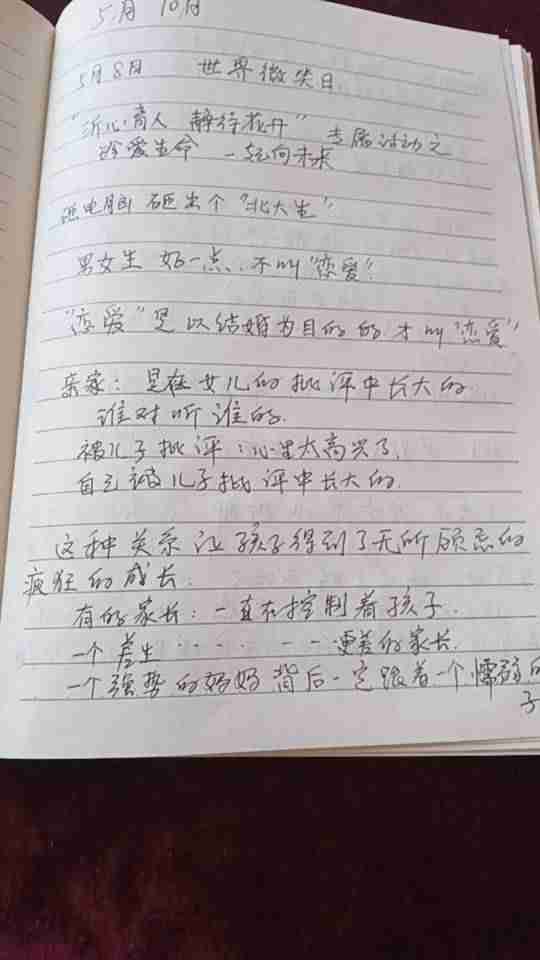 5月 10月
5月8日 世界微笑日
"沂心育人 静待花开" 专属活动之
珍爱生命 一起向未来
砸电脑 砸出个 "北大生"
男女生 好一点、不叫"恋爱"
"恋爱"是以结婚为目的的才叫"恋爱"
亲家：是在女儿的批评中长大的
谁对听谁的.
被儿子批评：心里太高兴了.
自己被儿子批评中长大的.
这种关系让孩子得到了无所顾忌的
疯狂的成长.
有的家长：一直在控制着孩子.
一个差生 ····· 一一更差的家长.
一个强势的妈妈背后一定跟着一个懦弱的
子